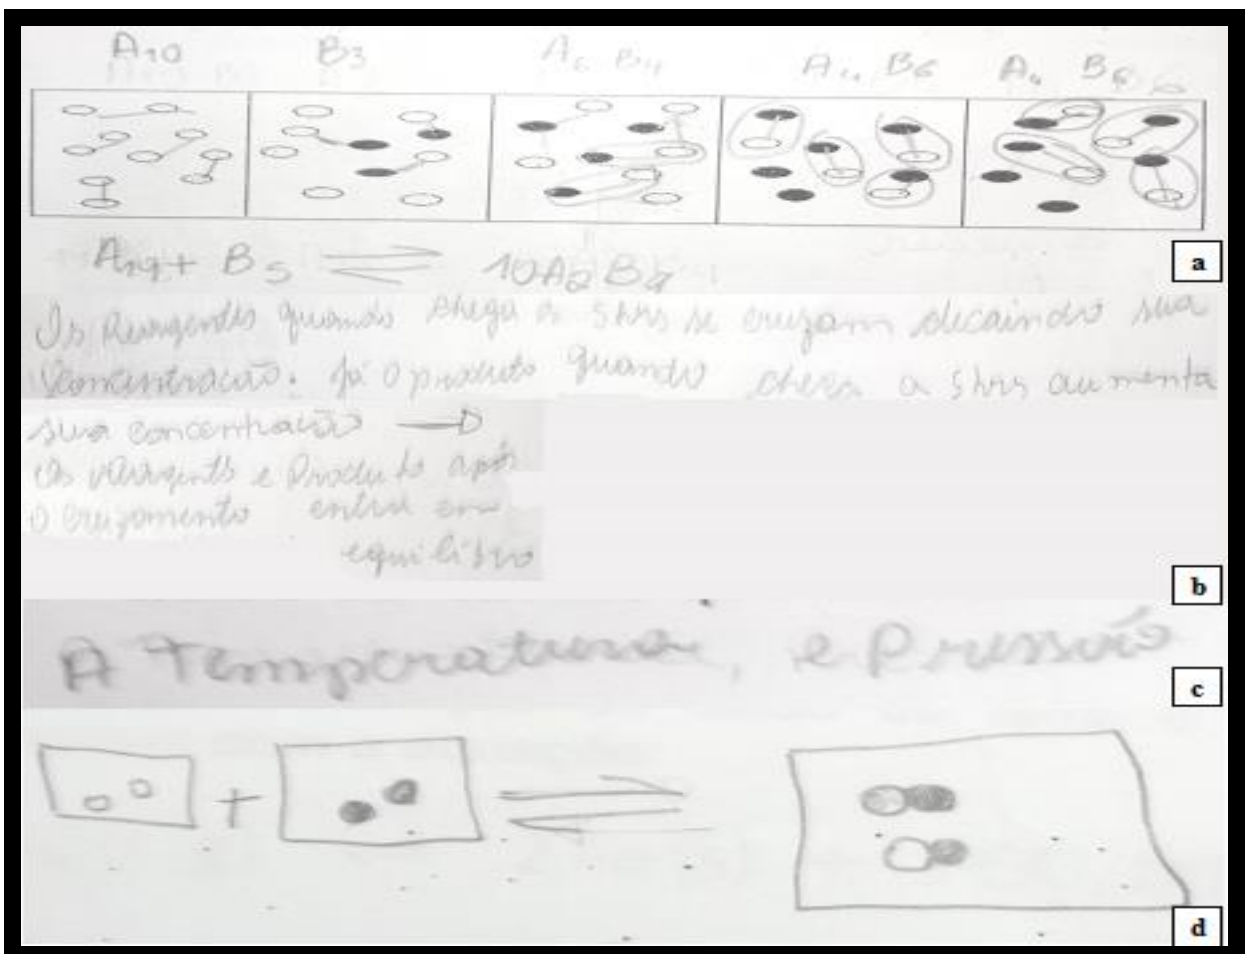 A10 B3 A6 B4 A4 B6 A4 B6
A19 + B5 ⇌ 10A2B2
a
Os Reargentes quando chega a 5hrs se cruzam decaindo sua
concentração. já o produto quando chega a 5hrs aumenta
sua concentração
Os e Produto após
o cruzamento entra em
equilibro
b
A Temperatura, e Pressão
c
+ ⇌
d